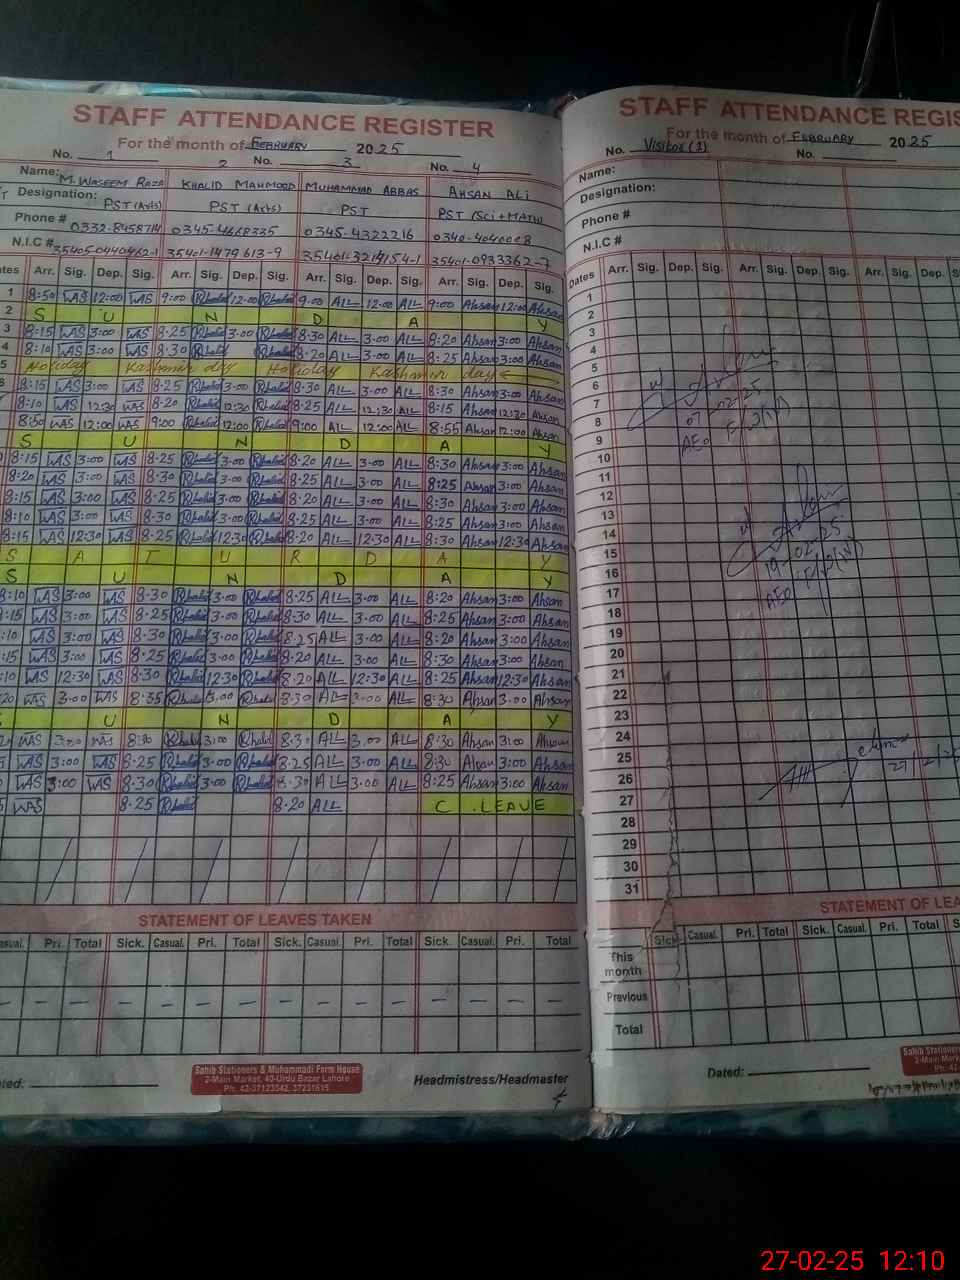 STAFF ATTENDANCE REGISTER
For the month of FEBRUARY 2025
No. 1 2 No. 3 No. 4
Name: M. WASEEM RAZA KHALID MAHMOOD MUHAMMAD ABBAS AHSAN ALI
Designation: PST (Arts) PST (Arts) PST PST (Sci + MATH)
Phone # 0332-8458714 0345-4668335 0345-4322216
N.I.C # 35405-0440462-1 35401-1479613-9 35401-3214154-1 35401-0933362-7
ates Arr. Sig. Dep. Sig. Arr. Sig. Dep. Sig. Arr. Sig. Dep. Sig. Arr. Sig. Dep. Sig.
1 8:50 WAS 12:00 WAS 9:00 Khalid 12:00 Khalid 9:00 ALL 12:00 ALL 9:00 Ahsan 12:00 Ahsan
2 S U N D A Y
3 8:15 WAS 3:00 WAS 8:25 Khalid 3:00 Khalid 8:30 ALL 3:00 ALL 8:20 Ahsan 3:00 Ahsan
4 8:10 WAS 3:00 WAS 8:30 Khalid Khalid 8:20 ALL 3:00 ALL 8:25 Ahsan 3:00 Ahsan
5 Holiday Kashmir day Holiday Kashmir day
8:15 WAS 3:00 WAS 8:25 Khalid 3:00 Khalid 8:30 ALL 3:00 ALL 8:30 Ahsan 3:00 Ahsan
8:10 WAS 12:30 WAS 8:20 Khalid 12:30 Khalid 8:25 ALL 12:30 ALL 8:15 Ahsan 12:30 Ahsan
8:50 WAS 12:00 WAS 9:00 Khalid 12:00 Khalid 9:00 ALL 12:00 ALL 8:55 Ahsan 12:00 Ahsan
S U N D A Y
8:15 WAS 3:00 WAS 8:25 Khalid 3:00 Khalid 8:20 ALL 3:00 ALL 8:30 Ahsan 3:00 Ahsan
8:20 WAS 3:00 WAS 8:30 Khalid 3:00 Khalid 8:25 ALL 3:00 ALL 8:25 Ahsan 3:00 Ahsan
8:15 WAS 3:00 WAS 8:25 Khalid 3:00 Khalid 8:20 ALL 3:00 ALL 8:30 Ahsan 3:00 Ahsan
8:10 WAS 3:00 WAS 8:30 Khalid 3:00 Khalid 8:25 ALL 3:00 ALL 8:25 Ahsan 3:00 Ahsan
8:15 WAS 12:30 WAS 8:25 Khalid 12:30 Khalid 8:20 ALL 12:30 ALL 8:30 Ahsan 12:30 Ahsan
S A T U R D A Y
S U N D A Y
8:10 WAS 3:00 WAS 8:30 Khalid 3:00 Khalid 8:25 ALL 3:00 ALL 8:20 Ahsan 3:00 Ahsan
:15 WAS 3:00 WAS 8:25 Khalid 3:00 Khalid 8:30 ALL 3:00 ALL 8:25 Ahsan 3:00 Ahsan
:10 WAS 3:00 WAS 8:30 Khalid 3:00 Khalid 8:25 ALL 3:00 ALL 8:20 Ahsan 3:00 Ahsan
:15 WAS 3:00 WAS 8:25 Khalid 3:00 Khalid 8:20 ALL 3:00 ALL 8:30 Ahsan 3:00 Ahsan
:10 WAS 12:30 WAS 8:30 Khalid 12:30 Khalid 8:20 ALL 12:30 ALL 8:25 Ahsan 12:30 Ahsan
20 WAS 3:00 WAS 8:35 Khalid 3:00 Khalid 8:30 ALL 3:00 ALL 8:30 Ahsan 3:00 Ahsan
S U N D A Y
WAS 3:00 WAS 8:30 Khalid 3:00 Khalid 8:30 ALL 3:00 ALL 8:30 Ahsan 3:00 Ahsan
WAS 3:00 WAS 8:25 Khalid 3:00 Khalid 8:25 ALL 3:00 ALL 8:30 Ahsan 3:00 Ahsan
WAS 3:00 WAS 8:30 Khalid 3:00 Khalid 8:30 ALL 3:00 ALL 8:25 Ahsan 3:00 Ahsan
WAS 8:25 Khalid 8:20 ALL C. LEAVE
STATEMENT OF LEAVES TAKEN
asual. Pri. Total Sick. Casual. Pri. Total Sick. Casual. Pri. Total Sick. Casual. Pri. Total
ated:
Sahib Stationers & Muhammadi Form House
2-Main Market, 40-Urdu Bazar Lahore
Ph: 42-37123342, 37231615
Headmistress/Headmaster
STAFF ATTENDANCE REGIS
For the month of FEBRUARY 2025
No. Visitor (1) No.
Name:
Designation:
Phone #
N.I.C #
Dates Arr. Sig. Dep. Sig. Arr. Sig. Dep. Sig. Arr. Sig. Dep. S
1
2
3
4
5
6
7
8
9
10
11
12
13
14
15
16
17
18
19
20
21
22
23
24
25
26
27
28
29
30
31
07-02-25
AEO
19-02-25
AEO
STATEMENT OF LEA
Sick Casual. Pri. Total Sick. Casual. Pri. Total Sick. Casual. Pri. Total S
This month
Previous
Total
Dated:
Sahib Stationers
2-Main Market
Ph: 42
27-02-25 12:10